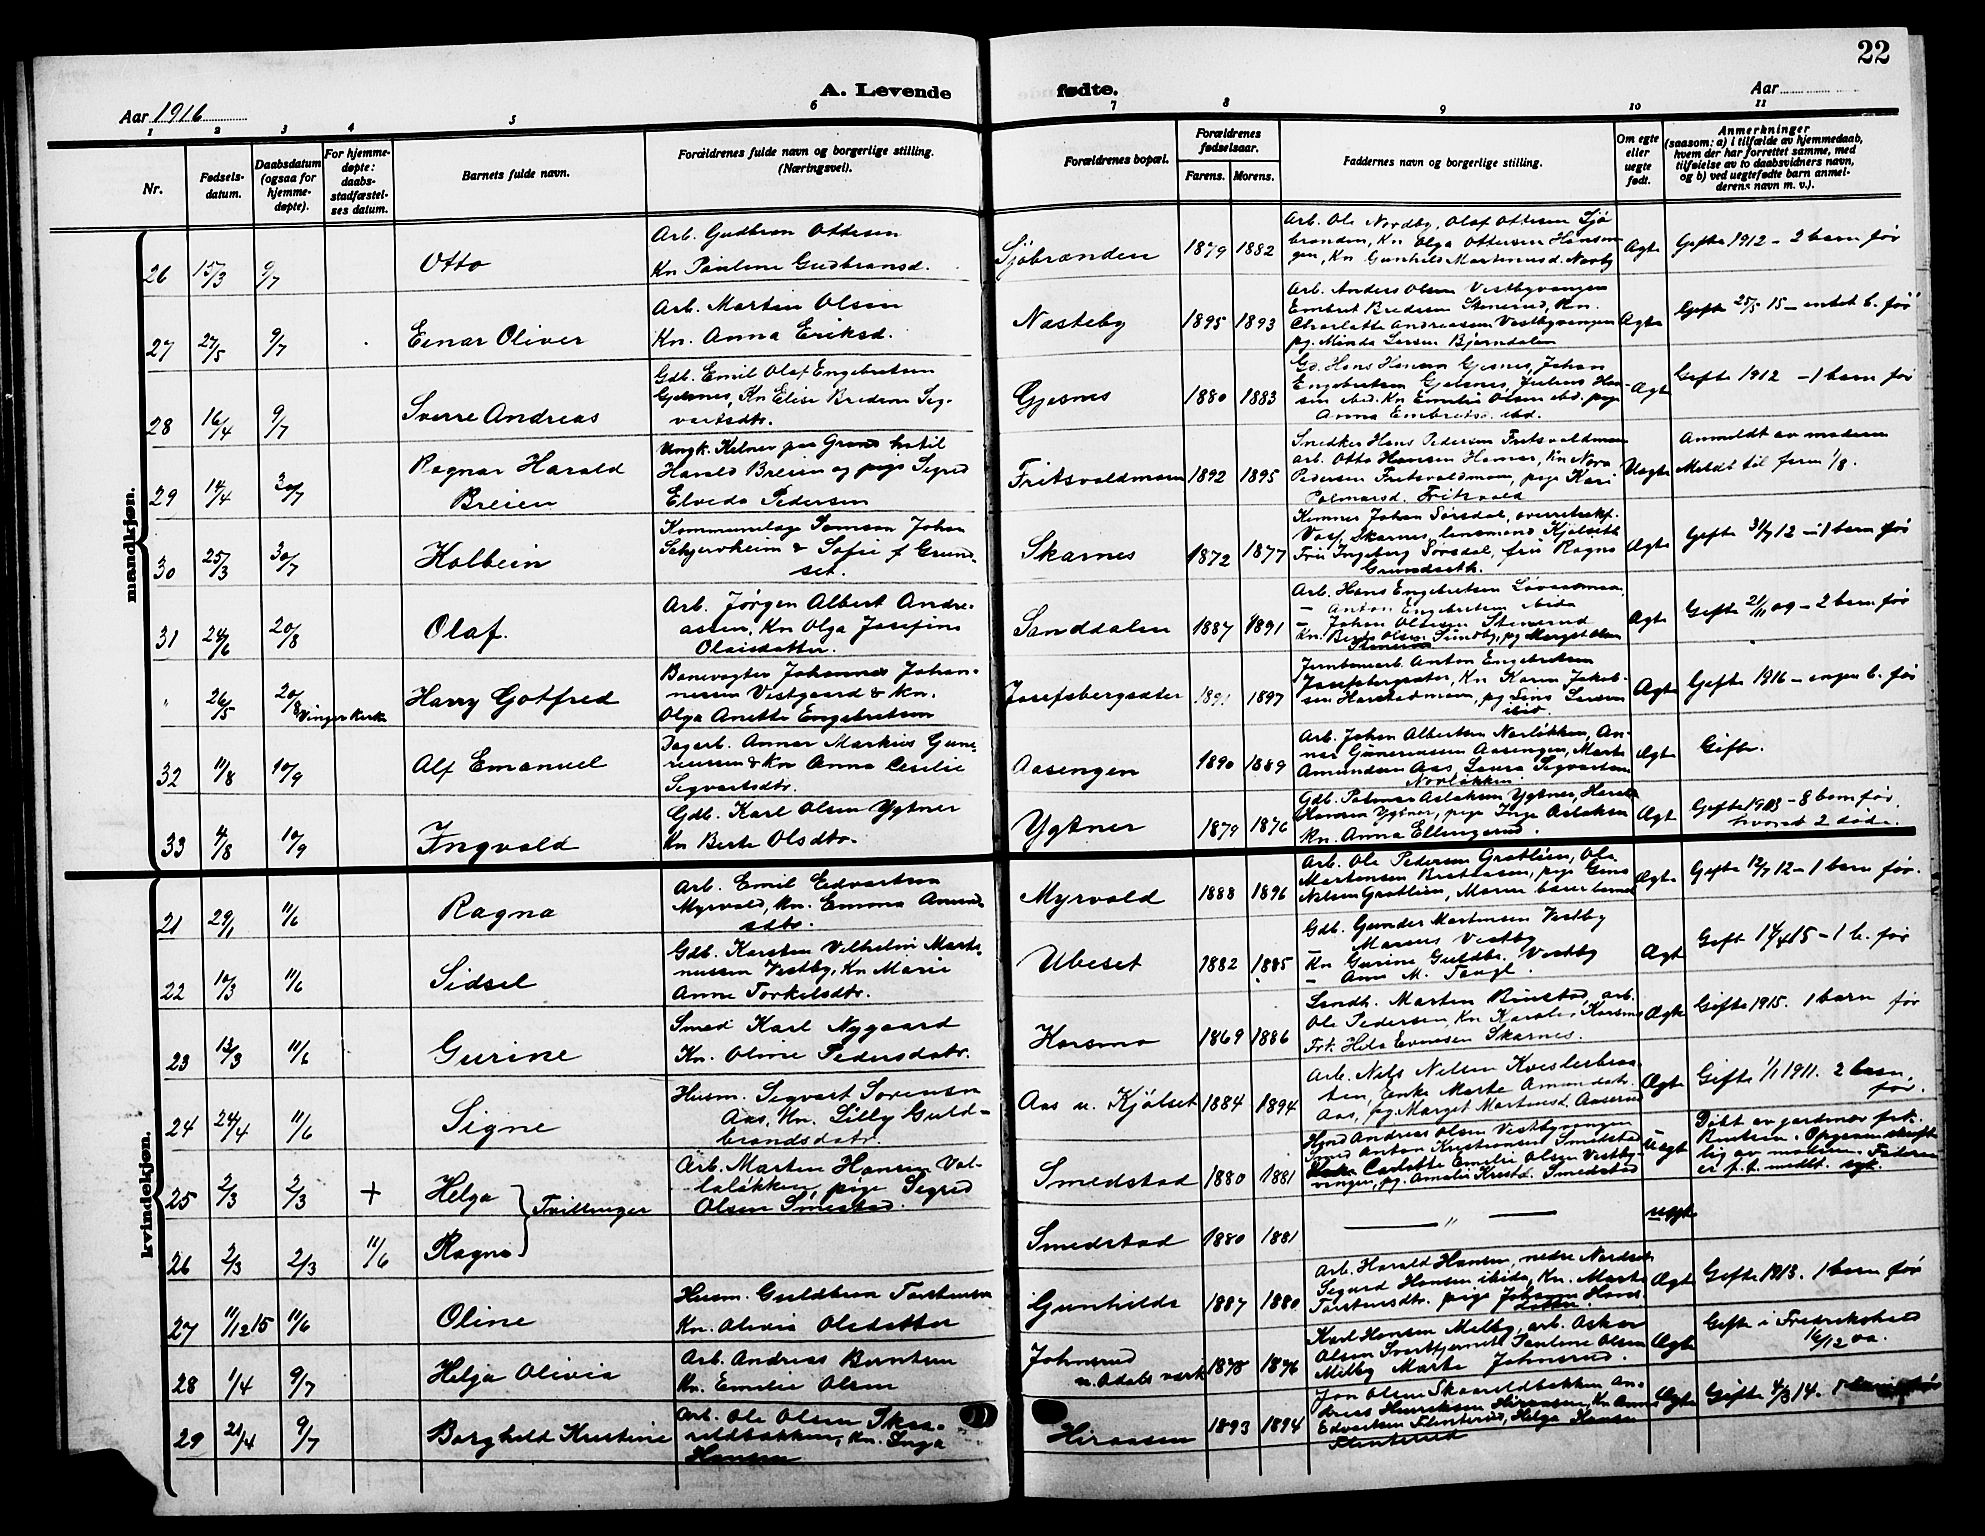 22
A. Levende fødte.
Aar 1916
Aar
1 2 3 4 5 6 7 8 9 10 11
Nr.
Fødsels-
datum.
Daabsdatum
(ogsaa for
hjemme-
døpte).
For hjemme-
døpte:
daabs-
stadfæstel-
ses datum.
Barnets fulde navn.
Forældrenes fulde navn og borgerlige stilling.
(Næringsvei).
Forældrenes bopæl.
Forældrenes
fødselsaar.
Farens. Morens.
Faddernes navn og borgerlige stilling.
Om egte
eller
uegte
født.
Anmerkninger
(saasom: a) i tilfælde av hjemmedaab,
hvem der har forrettet samme, med
tilføielse av to daabsvidners navn,
og b) ved uegtefødte barn anmel-
derens navn m. v.).
mandkjøn.
26 15/3 9/7 Otto
Arb. Gudbran Ottesen
Kn Pauline Gudbransd.
Sjöbranden 1879 1882
Arb. Ole Nordby, Olaf Ottesen Sjö
branden, Kn Olga Ottersen
Ægte Gifte 1912 - 2 barn før
27 27/5 9/7 Einar Oliver
Arb. Martin Olsen
Kn. Anna Eriksd.
Næsteby 1895 1893
Arb. Anders Olsen Vestbyvangen
Embret Bredesen Stenerud, Kn.
Charlotte Andreassen Vestbyvangen
pg. Minda Larsen Bjørndalen
Ægte Gifte 25/5 15 - intet b. før
28 16/4 9/7 Sverre Andreas
Gdb. Emil Olaf Engebretsen
Gjesnes, Kn Elise Bredesen Sig-
vartsdtr.
Gjesnes 1880 1883
Gd. Hans Hansen Gjesnes, Johan
Engebretsen Gjesnes, Julius Han-
sen ibid. Kn Emilie Olsen ibd. pige
Anna Embretsd. ibd.
Ægte Gifte 1912 - 1 barn før
29 14/4 30/7 Ragnar Harald
Breien
Ungk. Kelner paa Grand hotel
Harald Breien og pige Sigrid
Elvida Pedersen
Fritsvoldmoen 1892 1895
Snedker Hans Pedersen Fritsvoldmoen
arb. Otto Hansen Hamar, Kn Nora
Pedersen Fritsvoldmoen, pige Kari
Palmarsd. Fritsvold
Uægte Anmeldt av moderen
Meldt til fern 1/8.
30 25/3 30/7 Kolbein
Kommunelæge Samson Johan
Schjervheim & Sofie f Grund-
set.
Skarnes 1872 1877
Kemner Johan Sørsdal, overretssakf.
Vasf, Skarnes, lensmand Kjølseth
Fru Ingeborg Sørsdal, fru Ragna
Grundseth.
Ægte Gifte 31/7 12 - 1 barn før
31 24/6 20/8 Olaf.
Arb. Jørgen Albert Andre-
assen, Kn Olga Josefine
Olaisdatter.
Sanddalen 1887 1891
Arb. Hans Engebretsen
- Anton Engebretsen ibida
- Johan Ottesen Stenerud
Kn. Berte Olsen Sundby, pg Margit Olsen
Stenerud
Ægte Gifte 21/11 09 - 2 barn før
" 26/5 20/8 Vinger Kirke Harry Gotfred
Banevogter Johannes Johan-
nessen Vestgaard & Kn.
Olga Anette Engebretsen
Josefsbergsæter 1891 1897
Jernbanearb. Anton Engebretsen
Josefsbergsæter, Kn Karen Jakob-
sen Harstadmoen, pg Lina Larsen
ibid.
Ægte Gifte 1916 - ingen b. før
32 11/8 10/9 Alf Emanuel
Dagarb. Annar Markius Gune-
riussen & Kn Anna Cecilie
Segvartsdtr.
Aasengen 1890 1889
Arb. Johan Albertsen Norløkken, An-
nar Guneriussen Aasengen, Marte
Amundsen Aas, Laura Segvartsen
Norløkken
Ægte Gifte.
33 4/8 10/9 Ingvald
Gdb. Karl Olsen Ygtner
Kn Berte Olsdtr.
Ygtner 1879 1876
Gdb. Palmar Aslaksen Ygtner, Harald
Larsen Ygtner, pige Inga Aslaksen
Kn. Anna Ellingerud.
Ægte Gifte 1903 - 8 barn før,
hvoraf 2 døde.
kvindekjøn.
21 29/1 11/6 Ragna
Arb. Emil Edvartsen
Myrvold, Kn. Emma Amund-
sdtr.
Myrvold 1888 1896
Arb. Ole Pedersen Grøtlien, Ole
Martensen Brataasen, pige Gina
Nilsen Grøtlien,
Ægte Gifte 12/7 12 - 1 barn før.
22 10/3 11/6 Sidsel
Gdb. Karsten Vilhelm Marti-
nussen Vestby, Kn Marie
Anne Torkelsdtr.
Ubeset 1882 1885
Gdb. Gunder Martinsen Vestby
- Marius Vestby
Kn Gurine Guldbr. Vestby
- Anne M. Taugl.
Ægte Gift 17/4 15 - 1 b. før
23 12/3 11/6 Gurine
Smed Karl Nygaard
Kn. Oline Pedersdatr.
Korsmo 1869 1886
Landh. Marten Bustad, arb.
Ole Pedersen, Kn Karoline Korsmo
Frk. Hela Evensen Skarnes.
Ægte Gifte 1915. 1 barn før
24 24/4 11/6 Signe
Husm. Segvart Sørensen
Aas, Kn. Lilly Guld-
brandsdatr.
Aas u. Kjølset 1884 1894
Arb. Nils Nilsen Kveslerbraa-
ten, Enke Marte Amundsdt.
Aas, pg. Marget Martinsd. Aaserud
Ægte Gifte 1/1 1911. 2 barn
før.
25 2/3 2/3 + Helga } Tvillinger
Arb. Martin Hansen Val-
laløkken, pige Sigrid
Olsen Smestad.
Smedstad 1880 1881
Husmd Andreas Olsen Vestbyvangen
Smed Anton Kristiansen Smedstad
Carlotte Emilie Olsen Vestby-
vangen, pg. Amalie Kristd. Smedstad
Uægte Døbt av jordmor frk.
Knutsen. Opgaven skrift-
lig av moderen. Faderen
er f.t. medlt. syk.
26 2/3 2/3 11/6 Ragna
Smedstad 1880 1881 — " — uægte
27 11/12 15 11/6 Oline
Husm. Guldbran Torstensen
Kn. Olivia Olsdatter
Gunhilds 1887 1880
Arb. Harald Hansen, nedre Nordset
Sigurd Hansen ibida, Kn. Marte
Torstensdtr. pige Johanne Hans
datter.
Ægte Gifte 1913. 1 barn før
28 1/4 9/7 Helga Olivia
Arb. Andreas Berntsen
Kn. Emilie Olsen
Johnsrud
u. Odals værk 1878 1876
Karl Hansen Melby, arb. Oskar
Olsen Svartjernet Pauline Olsen
Melby Marte Johnsrud.
Ægte Gifte i Fredrikshald
16/12 00.
29 21/4 9/7 Borghild Kristine
Arb. Ole Olsen Skaa-
rildbakken, Kn. Inga
Hansen
Hiraasen 1893 1894
Jon Olsen Skaarildbakken An-
dreas Henriksen Hiraasen, Kn Anna
Edvartsen Flenterud, Helga Hansen
Flenterud
Ægte Gifte 4/3 14.